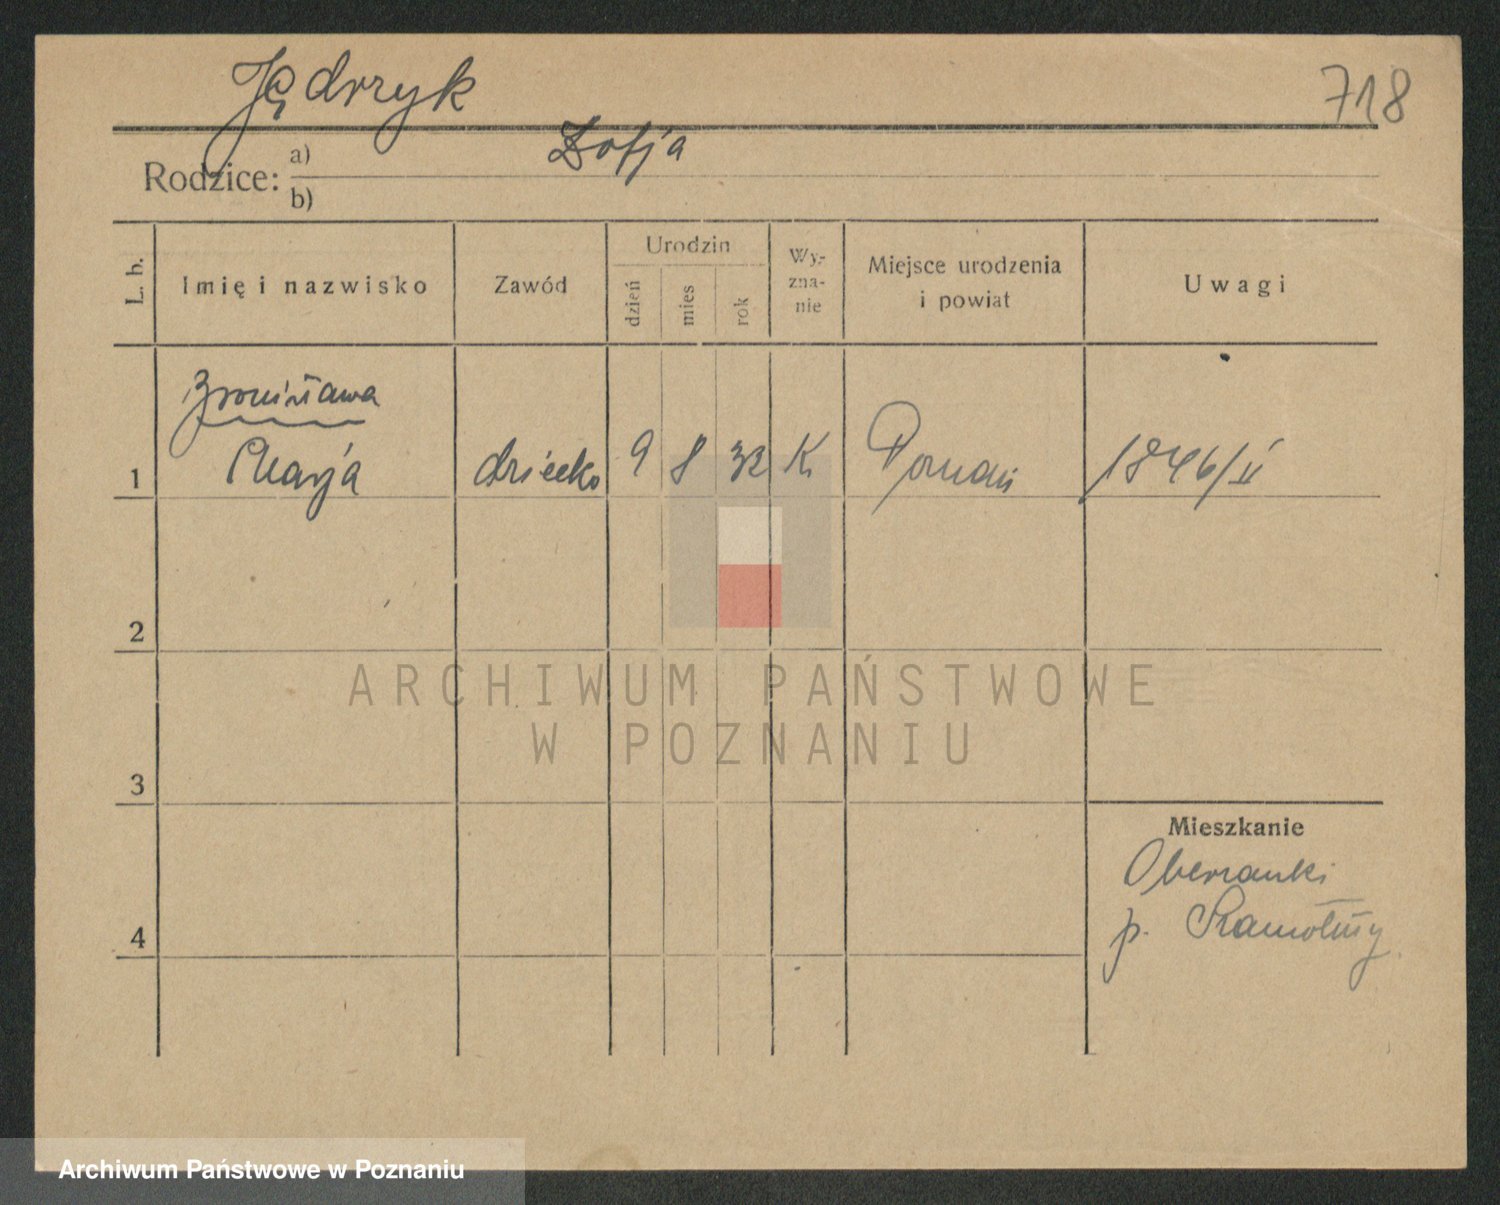 Jędrzyk
718
Zofja
Rodzice: a)
b)
L. b.
Imię i nazwisko
Zawód
Urodzin
dzień
mies
rok
Wy-
zna-
nie
Miejsce urodzenia
i powiat
Uwagi
Bronisława
1 Marja dziecko 9 8 32 K Poznań 1846/II
2
ARCHIWUM PAŃSTWOWE
W POZNANIU
3
Mieszkanie
Oberzanki
p. Szamotuły
4
Archiwum Państwowe w Poznaniu